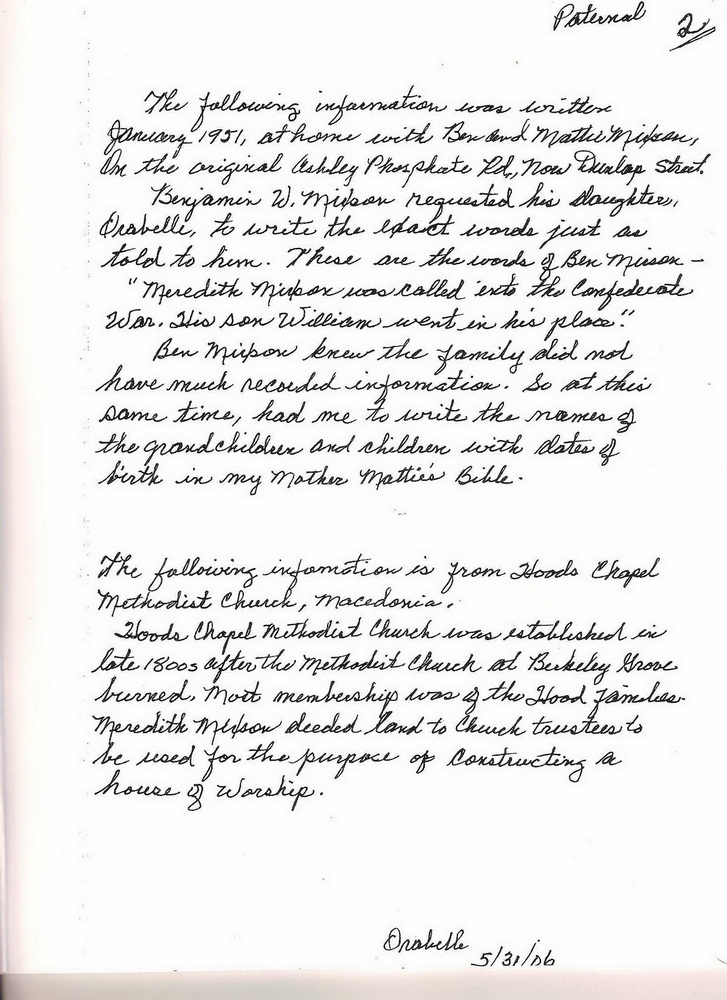 Paternal 2
The following information was written
January 1951, at home with Ben and Mattie Mixson,
On the original Ashley Phosphate Rd, Now Dunlap Street.
Benjamin W. Mixson requested his daughter,
Orabelle, to write the exact words just as
told to him. These are the words of Ben Mixson -
"Meredith Mixson was called into the Confederate
War. His son William went in his place".
Ben Mixson knew the family did not
have much recorded information. So at this
same time, had me to write the names of
the grandchildren and children with dates of
birth in my Mother Mattie's Bible.
The following infomation is from Hoods Chapel
Methodist Church, Macedonia.
Hoods Chapel Methodist Church was established in
late 1800s after the Methodist Church at Berkeley Grove
burned. Most membership was of the Hood families.
Meredith Mixson deeded land to Church trustees to
be used for the purpose of Constructing a
house of Worship.
Orabelle
5/31/06